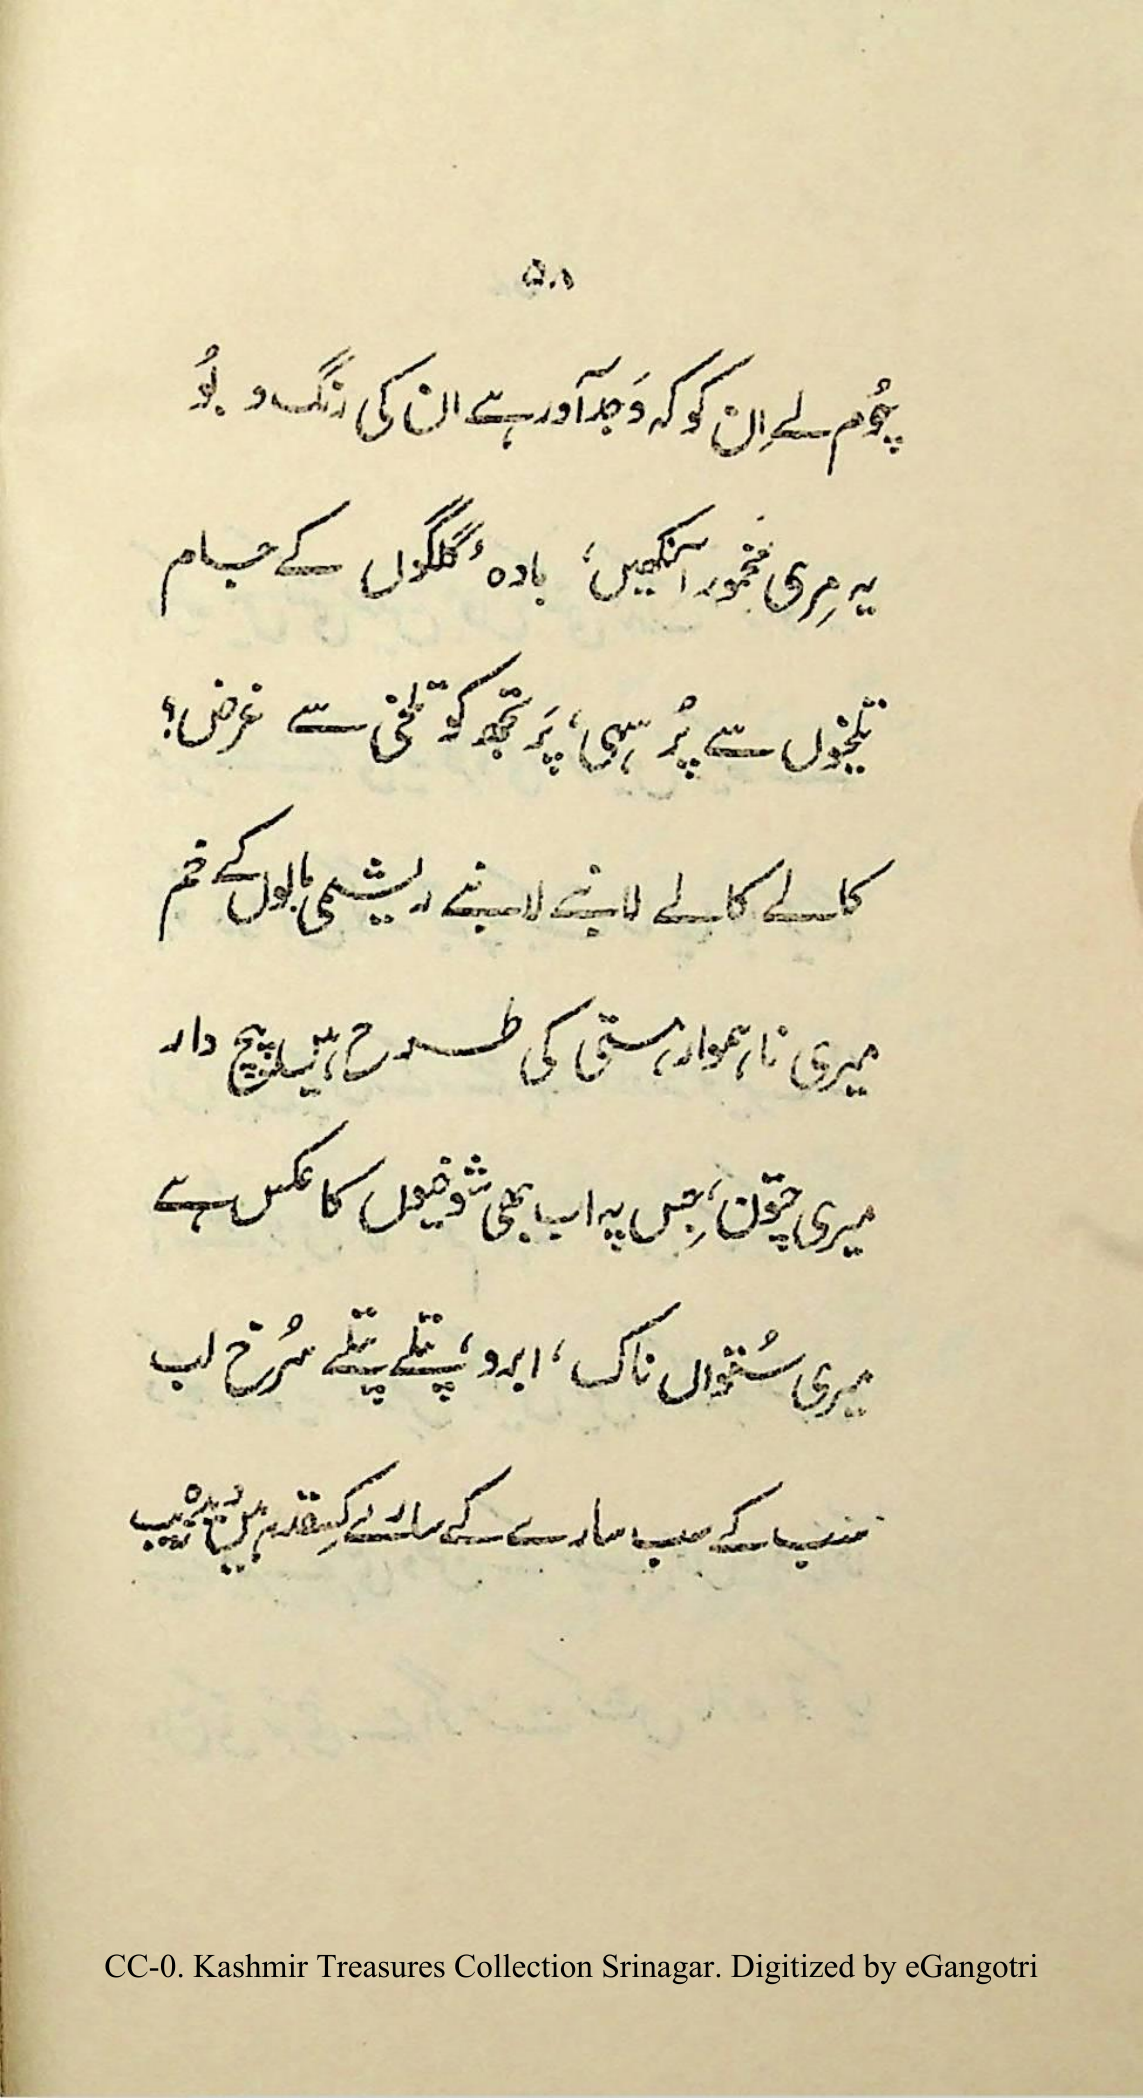 ۵۸
چُوم لے اِن کو کہ وَجد آور ہے ان کی رنگ و بُو
یہ مِری مخمور آنکھیں، بادہٴ گلگوں کے جام
تلخیوں سے پُر سہی، پَر تجھ کو تلخی سے غرض؟
کالے کالے لانبے لانبے ریشمی بالوں کے خم
میری ناہموار ہستی کی طرح ہیں پیچ دار
میری چتون، جِس پہ اب بھی شوخیوں کا عکس ہے
میری سُتواں ناک، ابرو، پتلے پتلے سُرخ لب
سب کے سب سارے کے سارے کِس قدر ہیں دیدہ زیب
CC-0. Kashmir Treasures Collection Srinagar. Digitized by eGangotri